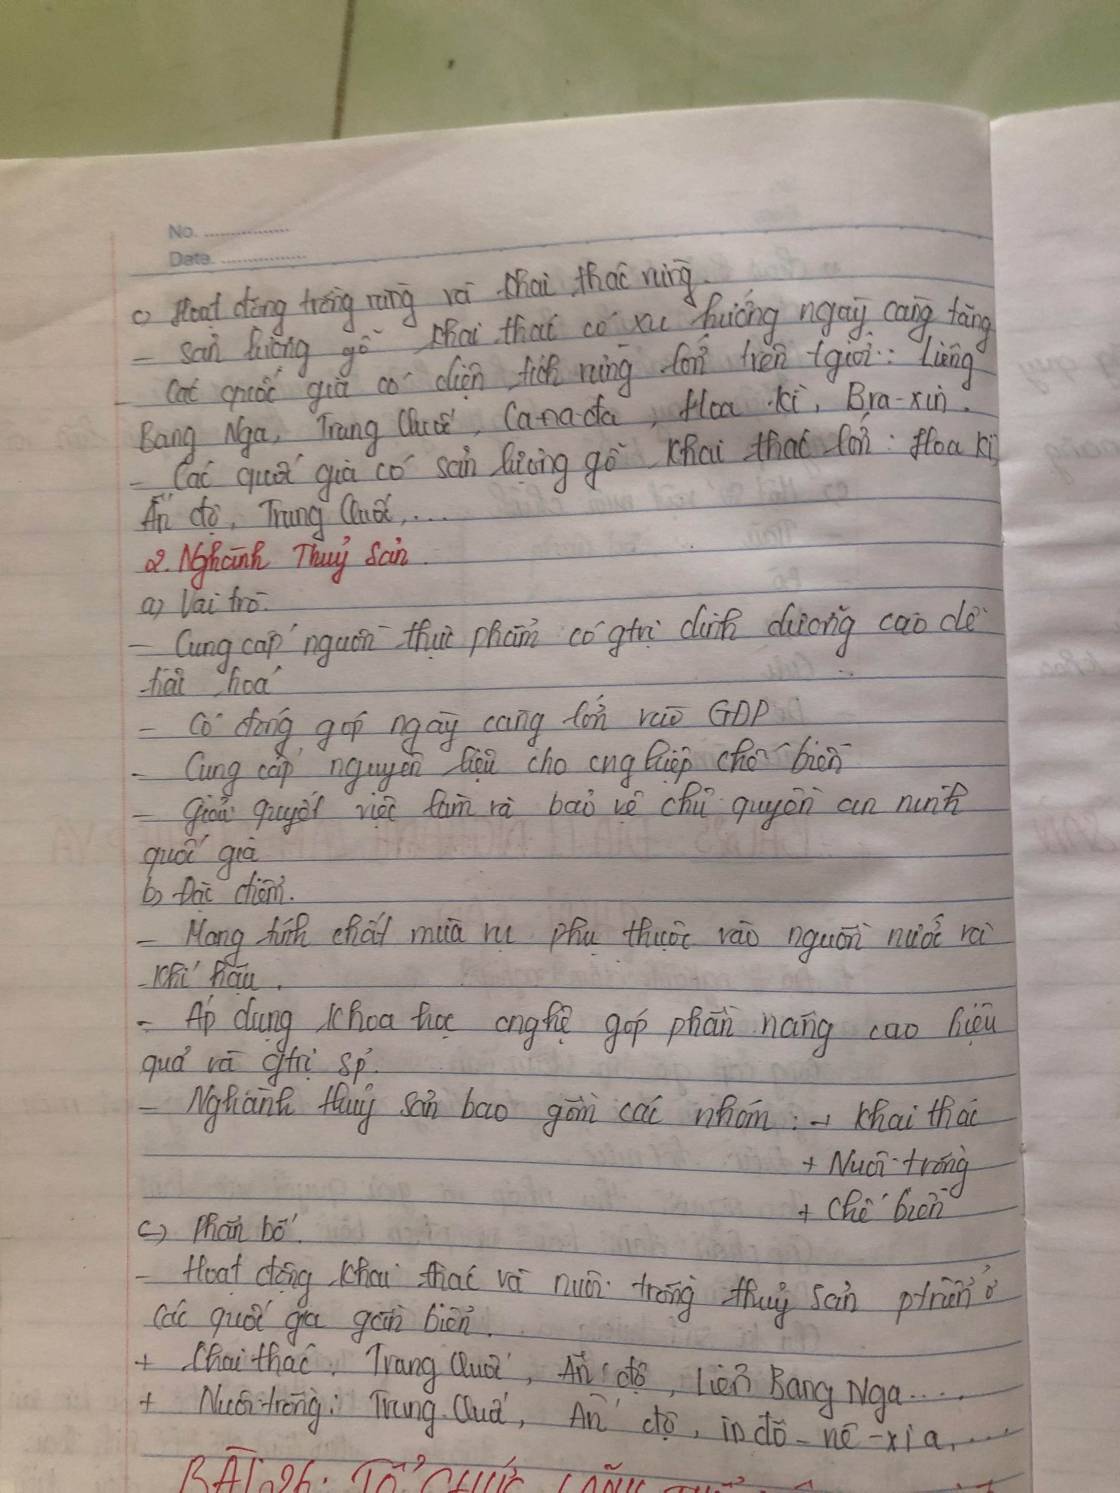 No. ................
Date. ................
c) Hoạt động trồng rừng và khai thác rừng.
- Sản lượng gỗ khai thác có xu hướng ngày càng tăng
- Các quốc gia có diện tích rừng lớn trên tgiới: Liêng
Bang Nga, Trung Quốc, Ca-na-đa, Hoa Kì, Bra-xin.
- Các quốc gia có sản lượng gỗ khai thác lớn: Hoa Kì
Ấn độ, Trung Quốc,...
2. Nghành Thuỷ Sản
a) Vai trò.
- Cung cấp nguồn thực phẩm có gtrị dinh dưỡng cao dễ
tiêu hoá
- Có đóng góp ngày càng lớn vào GDP
- Cung cấp nguyên liệu cho cnghiệp chế biến
- Giải quyết việc làm và bảo vệ chủ quyền an ninh
quốc gia
b) Đặc điểm.
- Mang tính chất mùa vụ phụ thuộc vào nguồn nước và
khí hậu.
- Áp dụng khoa học cnghệ góp phần nâng cao hiệu
quả và gtrị sp.
- Nghành thuỷ sản bao gồm các nhóm: + khai thác
+ Nuôi trồng
+ chế biến
c) Phân bố.
- Hoạt động khai thác và nuôi trồng thuỷ sản ptriển ở
các quốc gia gần biển.
+ Khai thác: Trung Quốc, Ấn độ, Liên Bang Nga....
+ Nuôi trồng: Trung Quốc, Ấn độ, in đô-nê-xi a,...
BÀI 26: TỔ CHỨC LÃNH THỔ